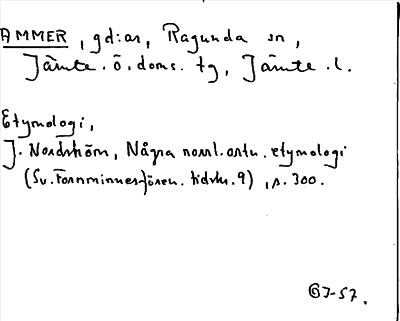 AMMER, gd:ar, Ragunda sn,
Jämte. ö. doms. tg, Jämte. l.
Etymologi,
J. Nordström, Några norrl. ortn. etymologi
(Sv. Fornminnesfören. tidskr. 9), s. 300.
J-57.